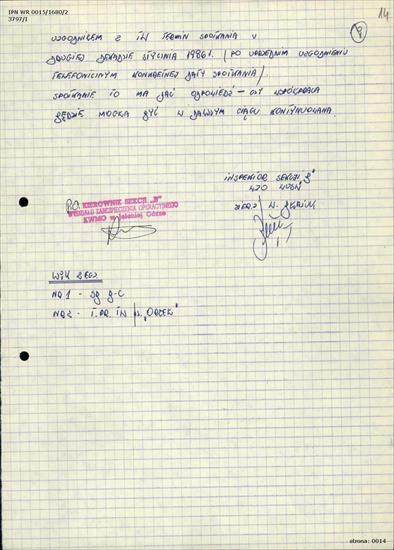 IPN WR 0015/1680/2
3797/1
14
9
UZGODNIŁEM Z TW TERMIN SPOTKANIA W
DRUGIEJ DEKADZIE STYCZNIA 1986 r. (PO UPRZEDNIM UZGODNIENIU
TELEFONICZNYM KONKRETNEJ DATY SPOTKANIA)
SPOTKANIE TO MA DAĆ ODPOWIEDŹ - CZY WSPÓŁPRACA
BĘDZIE MOGŁA BYĆ W DALSZYM CIĄGU KONTYNUOWANA.
INSPEKTOR SEKCJI "B"
P.O. KIEROWNIK SEKCJI „B"
WYDZIAŁU ZABEZPIECZENIA OPERACYJNEGO
KWMO w Jeleniej Górze
WYK 2 EGZ
NR 1 -
NR 2 - T. PR. TW
strona: 0014